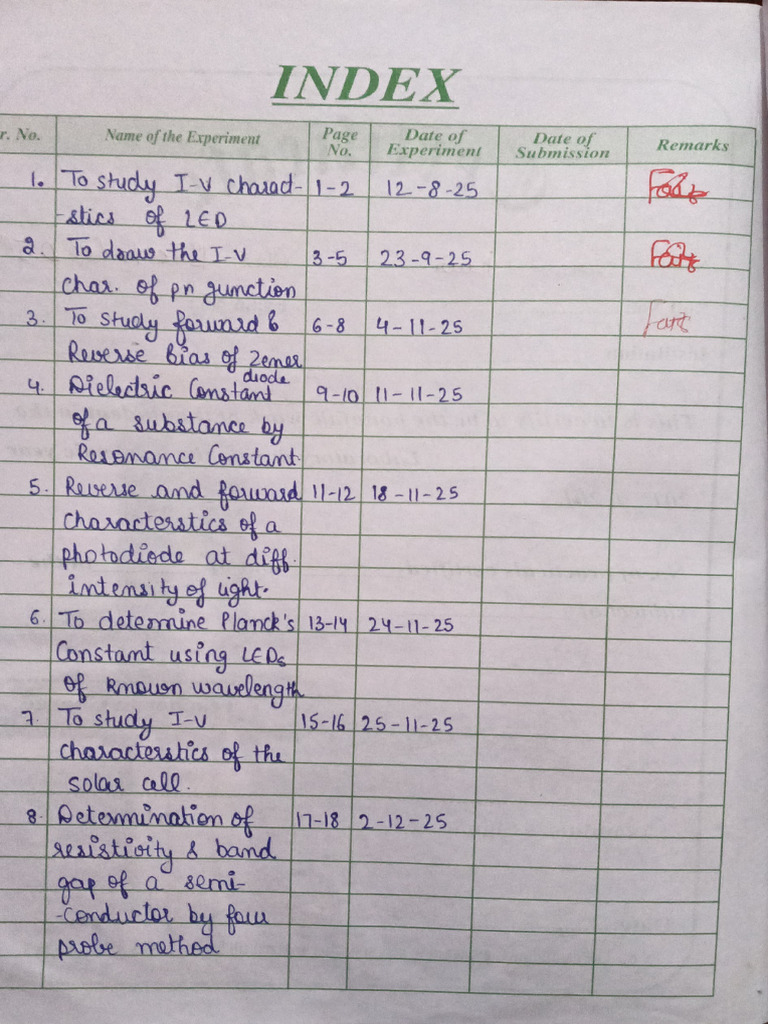 INDEX
r. No. Name of the Experiment Page No. Date of Experiment Date of Submission Remarks
1. To study I-V charact- 1-2 12-8-25
-stics of LED
2. To draw the I-V 3-5 23-9-25
char. of pn junction
3. To study forward & 6-8 4-11-25
Reverse bias of Zener
diode
4. Dielectric Constant 9-10 11-11-25
of a substance by
Resonance Constant.
5. Reverse and forward 11-12 18-11-25
characterstics of a
photodiode at diff.
intensity of light.
6. To determine Planck's 13-14 24-11-25
Constant using LEDs
of known wavelength
7. To study I-V 15-16 25-11-25
characterstics of the
solar cell.
8. Determination of 17-18 2-12-25
resistivity & band
gap of a semi-
-conductor by four
probe method